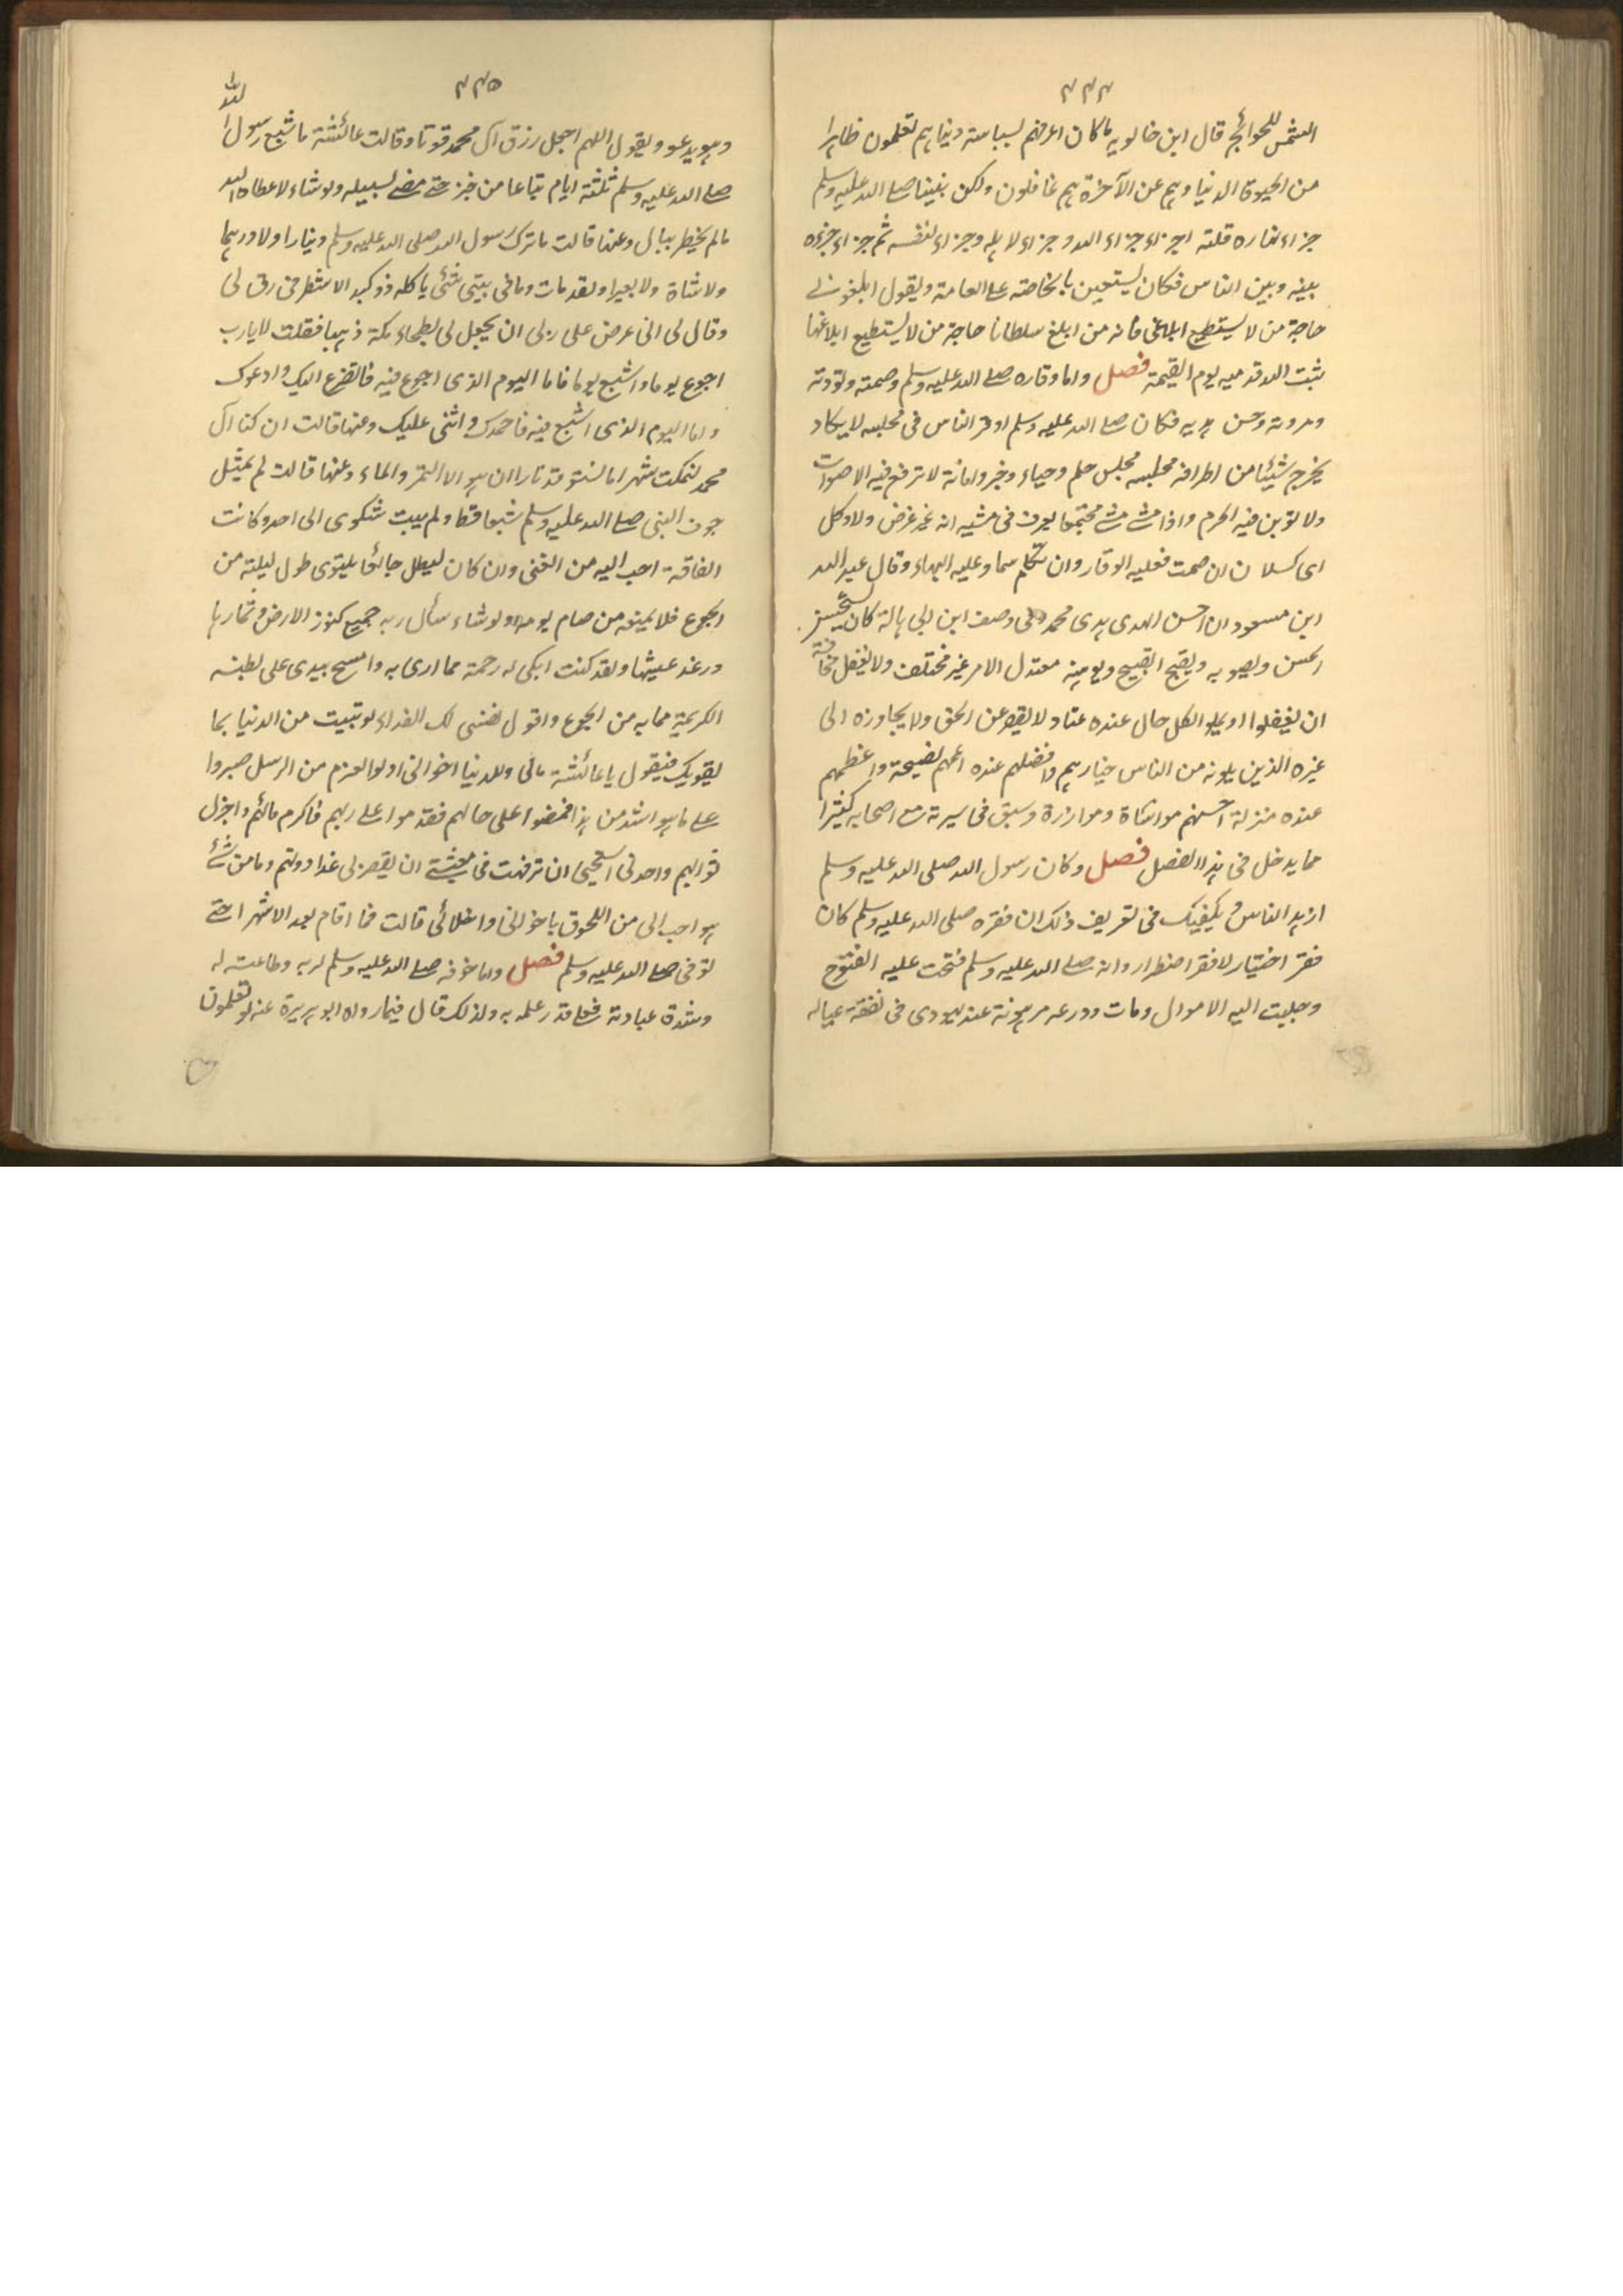 ٢٢٤
الشمس للحوائج قال ابن خالويه ما كان اعرفهم لسياسة دنياهم تعلمون ظاهرا
من الحيوة الدنيا وهم عن الآخرة هم غافلون ولكن نبينا صلے الله عليه وسلم
جزاء نهاره ثلثة اجزاء جزاء الله وجزاء لاهله وجزاء لنفسه ثم جزاء جزءه
بينه وبين الناس فكان يستعين بالخاصة علے العامة ويقول ابلغوني
حاجة من لا يستطيع ابلاغي فانه من ابلغ سلطانا حاجة من لا يستطيع ابلاغها
ثبت الله قدميه يوم القيمة فصل واما وقاره صلے الله عليه وسلم وصمته وتودته
ومروته وحسن هديه فكان صلے الله عليه وسلم اوقر الناس في مجلسه لا يكاد
يخرج شيئا من اطرافه مجلسه مجلس حلم وحياء وخير وامانة لا ترفع فيه الاصوات
ولا توبن فيه الحرم واذا مشے مشے مجتمعا يعرف في مشيه انه غير غرض ولا وكل
اى كسلان ان صمت فعليه الوقار وان تكلم سما وعليه البهاء وقال عبد الله
ابن مسعود ان احسن الهدى هدى محمد وفي وصف ابن ابي هالة كان يحسن
الحسن ويصوبه ويقبح القبيح ويوهنه معتدل الامر غير مختلف ولا يغفل مخافة
ان يغفلوا او يملوا لكل حال عنده عتاد لا يقصر عن الحق ولا يجاوزه الى
غيره الذين يلونه من الناس خيارهم وافضلهم عنده اعمهم نصيحة واعظمهم
عنده منزلة احسنهم مواساة وموازرة وسبق في سيرته مع اصحابه كثيرا
مما يدخل في هذا الفصل فصل وكان رسول الله صلى الله عليه وسلم
ازهد الناس ويكفيك في تعريف ذلك ان فقره صلى الله عليه وسلم كان
فقر اختيار لا فقر اضطرار وانه صلے الله عليه وسلم فتحت عليه الفتوح
وجلبت اليه الاموال ومات ودرعه مرهونة عند يهودى في نفقة عياله
٢٢٥
وهو يدعو ويقول اللهم اجعل رزق آل محمد قوتا وقالت عائشة ما شبع رسول الله
صلے الله عليه وسلم ثلثة ايام تباعا من خبز حتے مضے لسبيله ولو شاء لاعطاه الله
ما لم يخطر ببال وعنها قالت ما ترك رسول الله صلى الله عليه وسلم دينارا ولا درهما
ولا شاة ولا بعيرا ولقد مات وما في بيتى شئ ياكله ذو كبد الا شطر في رف لى
وقال لى انى عرض على ربى ان يجعل لى بطحاء مكة ذهبا فقلت لا يارب
اجوع يوما واشبع يوما فاما اليوم الذى اجوع فيه فاتضرع اليك وادعوك
واما اليوم الذى اشبع فيه فاحمدك واثنى عليك وعنها قالت ان كنا آل
محمد لنمكث شهرا ما نستوقد نارا ان هو الا التمر والماء وعنها قالت لم يمتل
جوف النبى صلے الله عليه وسلم شبعا قط ولم يبث شكوى الى احد وكانت
الفاقة احب اليه من الغنى وان كان ليظل جائعا يلتوى طول ليلته من
الجوع فلا يمنعه من صام يومه ولو شاء سأل ربه جميع كنوز الارض وثمارها
ورغد عيشها ولقد كنت ابكى له رحمة مما ارى به وامسح بيدى على بطنه
الكريمة مما به من الجوع واقول نفسى لك الفداء لو تبيت من الدنيا بما
يقويك فيقول يا عائشة مالى وللدنيا اخوانى اولوا العزم من الرسل صبروا
علے ما هو اشد من هذا فمضوا على حالهم فقدموا علے ربهم فاكرم مآلهم واجزل
ثوابهم واجدنى استحيى ان ترفهت فى معيشتے ان يقصر بى غدا دونهم وما من شئ
هو احب الى من اللحوق باخوانى واخلائى قالت فما اقام بعد الا شهرا حتے
توفى صلے الله عليه وسلم فصل واما خوفه صلے الله عليه وسلم لربه وطاعته له
وشدة عبادته فعلے قدر علمه به ولذلك قال فيما رواه ابو هريرة عنه لو تعلمون